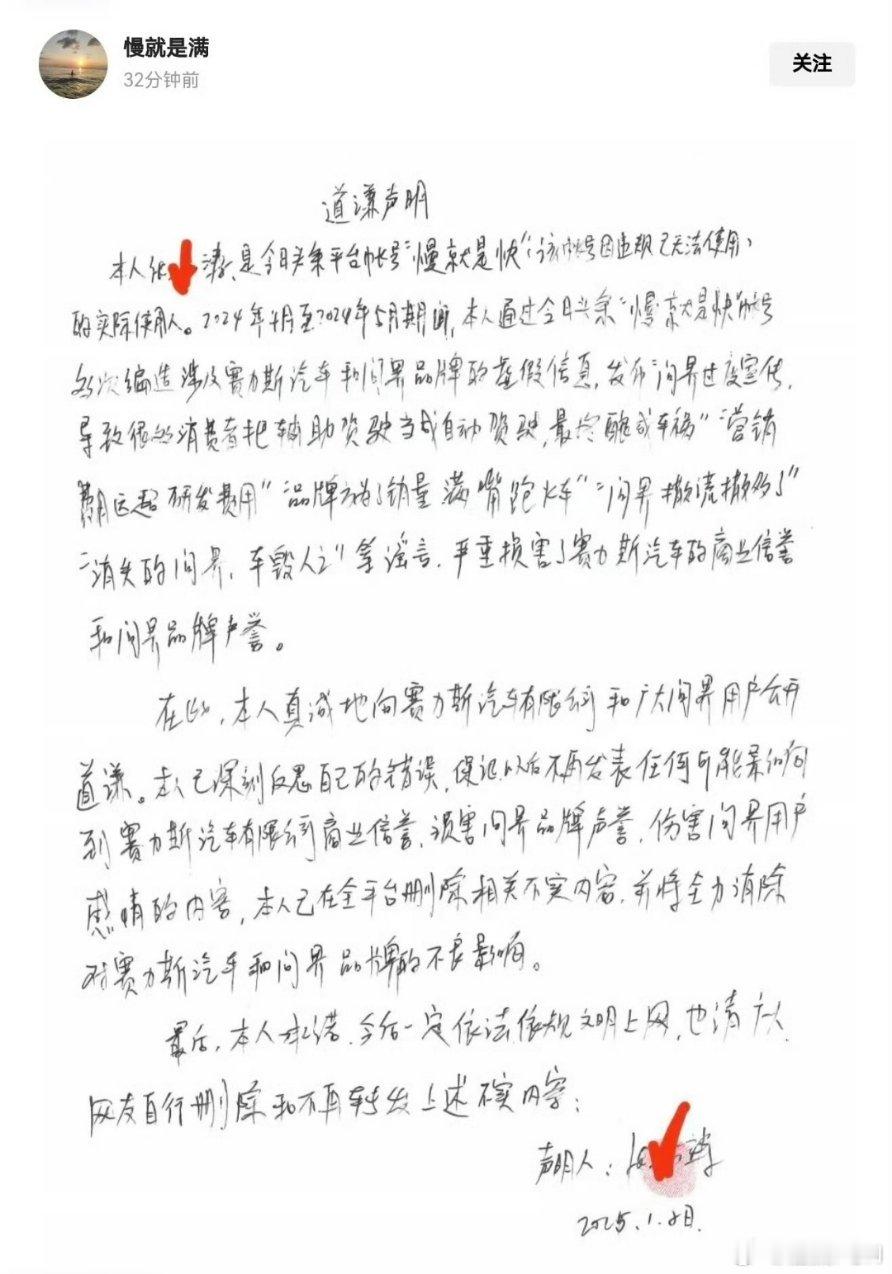 慢就是满
32分钟前
关注
道谦声明
本人 涛,是今日头条平台帐号“慢就是快”(该帐号因违规已无法使用)
的实际使用人。2024年4月至2024年5月期间,本人通过今日头条“慢就是快”帐号
多次编造涉及赛力斯汽车和问界品牌的虚假信息,发布“问界过度宣传,
导致很多消费者把辅助驾驶当成自动驾驶,最终酿成车祸”“营销
费用远超研发费用”“品牌方为了销量满嘴跑火车”“问界撤流撤多了”
“消失的问界,车毁人亡”等谣言,严重损害了赛力斯汽车的商业信誉
和问界品牌声誉。
在此,本人真诚地向赛力斯汽车有限公司和广大问界用户公开
道谦。本人已深刻反思自己的错误,保证以后不再发表任何可能影响
到赛力斯汽车有限公司商业信誉,损害问界品牌声誉,伤害问界用户
感情的内容,本人已在全平台删除相关不实内容,并将全力消除
对赛力斯汽车和问界品牌的不良影响。
最后,本人承诺,今后一定依法依规文明上网,也请广大
网友自行删除和不再转发上述不实内容;
声明人:
2025.1.8日.